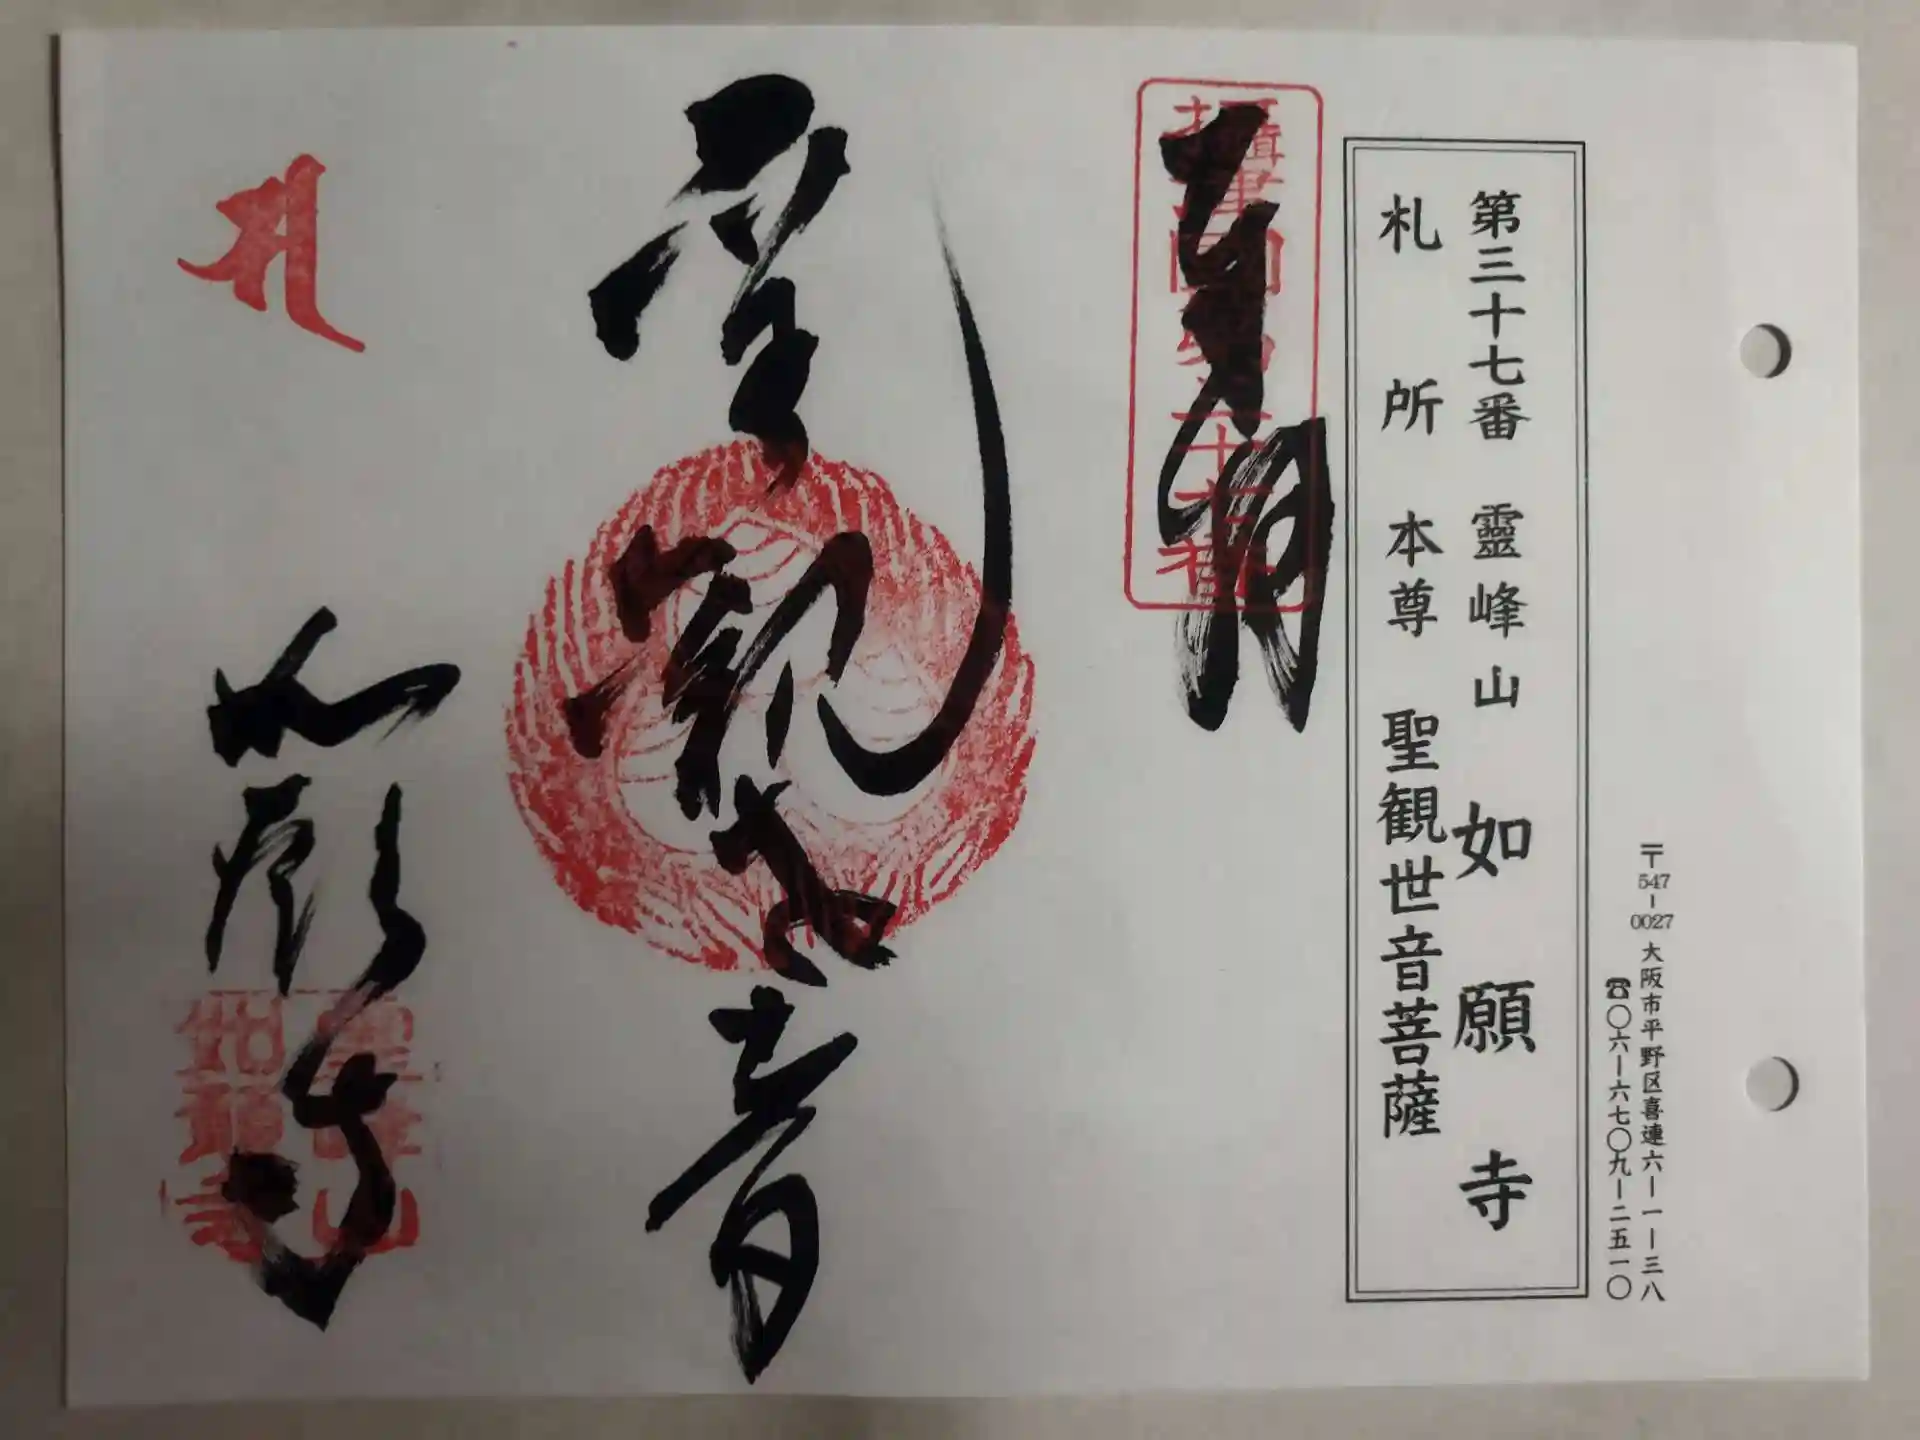 〒547-0027 大阪市平野区喜連六ー一ー三八
☎〇六ー六七〇九ー二五一〇
第三十七番 靈峰山 如願寺
札所本尊 聖観世音菩薩
奉拝
摂津國第三十七番
聖観世音
如願寺